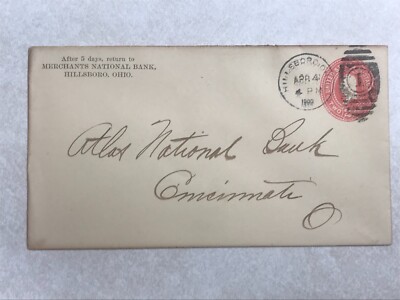 After 5 days, return to
MERCHANTS NATIONAL BANK,
HILLSBORO, OHIO.
HILLSBORO
APR 4
4 PM
Atlas National Bank
Cincinnati
O